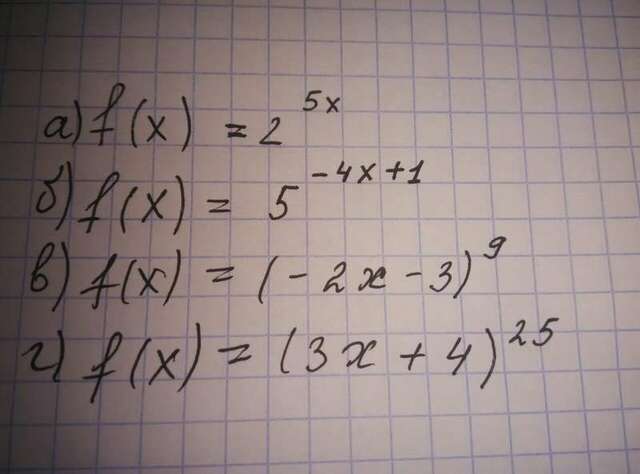 а) f(x) = 2^{5x}
б) f(x) = 5^{-4x+1}
в) f(x) = (-2x-3)^{9}
г) f(x) = (3x+4)^{25}